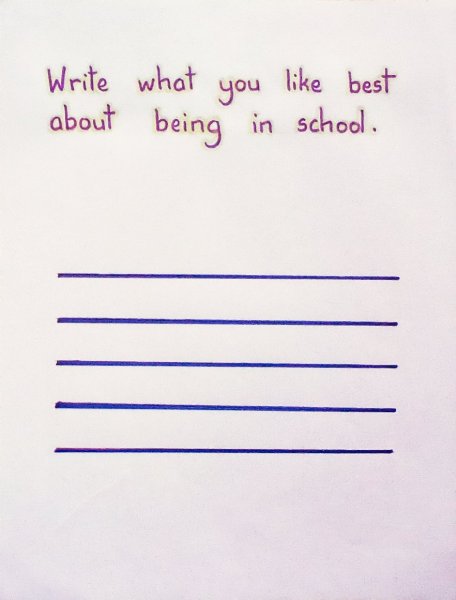 Write what you like best
about being in school.